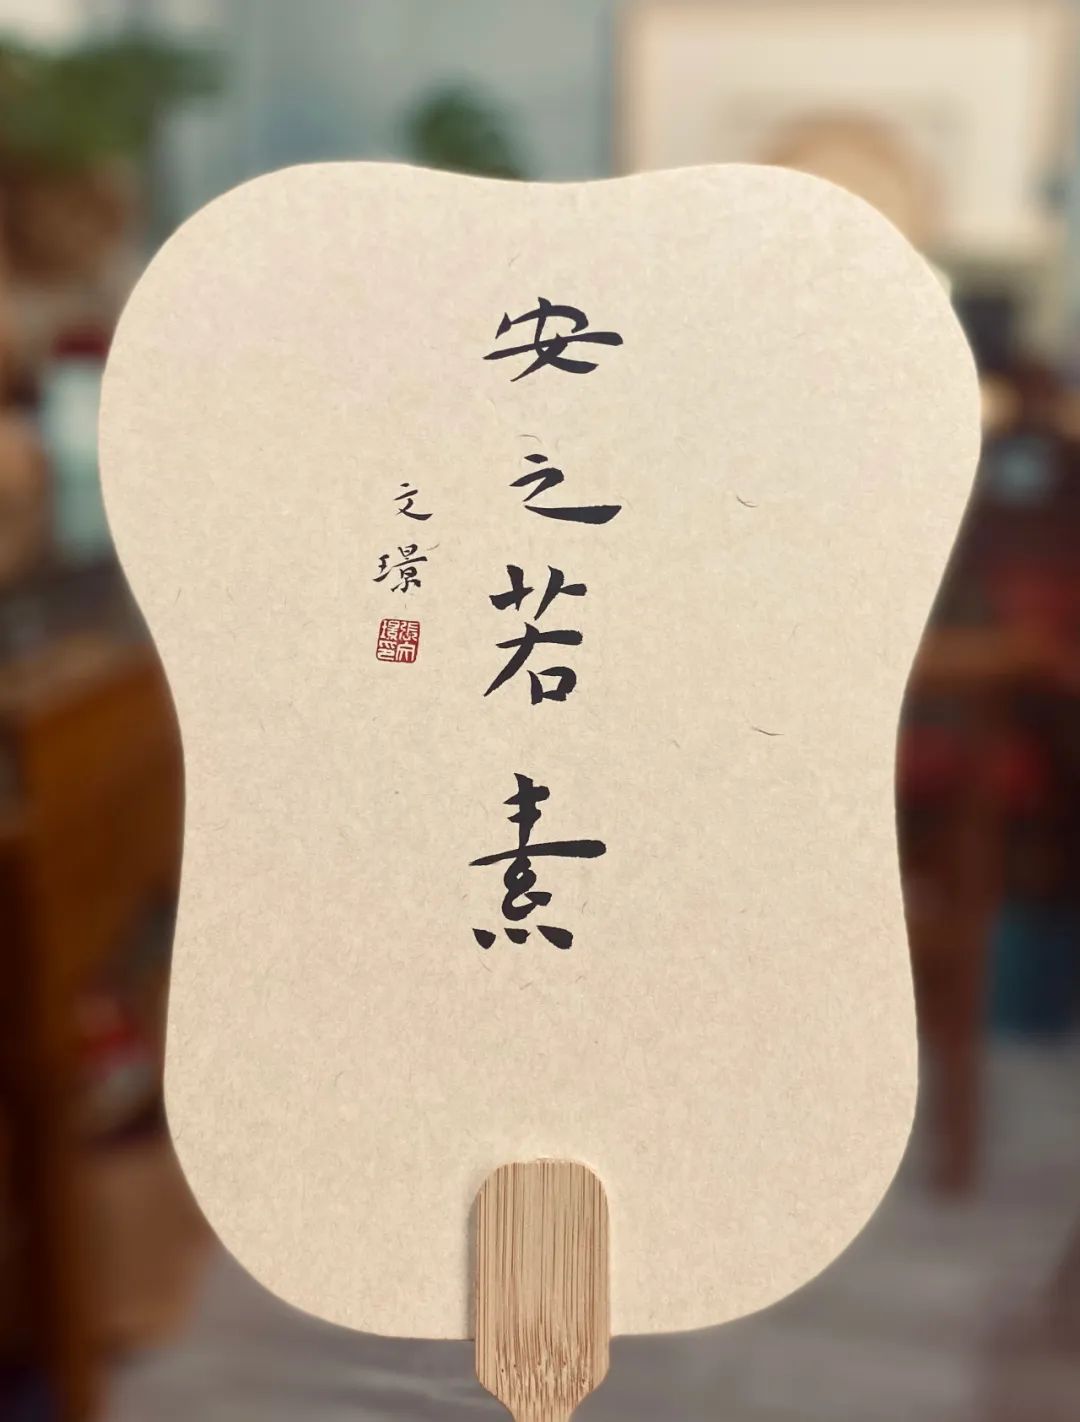 安之若素
文璟
張文璟印